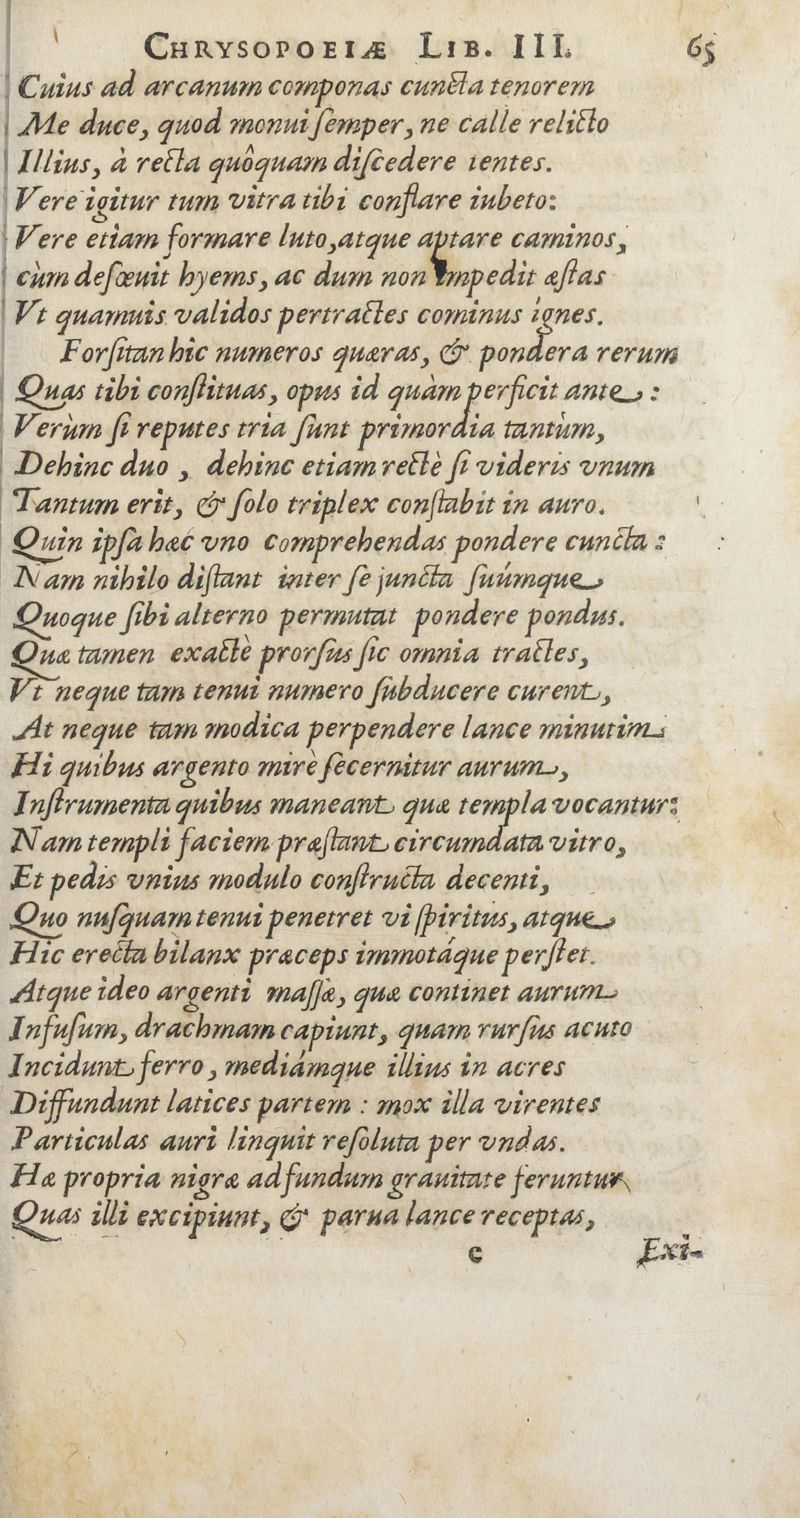 CHRYSOPOEIÆ LIB. III. 65
Cuius ad arcanum componas cuncta tenorem
Me duce, quod monui semper, ne calle relicto
Illius, à recta quôquam discedere tentes.
Vere igitur tum vitra tibi conflare iubeto:
Vere etiam formare luto, atque aptare caminos,
cùm defœuit hyems, ac dum non impedit æstas
Vt quamuis validos pertractes cominus ignes.
Forsitan hic numeros quæras, & pondera rerum
Quas tibi constituas, opus id quàm perficit ante:
Verùm si reputes tria sunt primordia tantùm,
Dehinc duo, dehinc etiam rectè si videris vnum
Tantum erit, & solo triplex constabit in auro.
Quin ipsa hæc vno comprehendas pondere cuncta:
Nam nihilo distant inter se juncta suúmque
Quoque sibi alterno permutat pondere pondus.
Quæ tamen exactè prorsus sic omnia tractes,
Vt neque tam tenui numero subducere curent,
At neque tam modica perpendere lance minutim
Hi quibus argento mirè secernitur aurum,
Instrumenta quibus maneant quæ templa vocantur:
Nam templi faciem præstant circumdata vitro,
Et pedis vnius modulo constructa decenti,
Quo nusquam tenui penetret vi spiritus, atque
Hic erecta bilanx præceps immotáque perstet.
Atque ideo argenti massæ, quæ continet aurum
Infusum, drachmam capiunt, quam rursus acuto
Incidunt ferro, mediámque illius in acres
Diffundunt latices partem : mox illa virentes
Particulas auri linquit resoluta per vndas.
Hæ propria nigræ ad fundum grauitate feruntur
Quas illi excipiunt, & parua lance receptas,
e Exi-